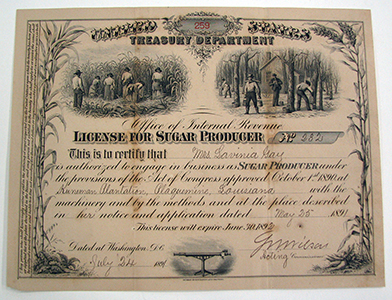 UNITED STATES
259
TREASURY DEPARTMENT
Office of Internal Revenue
LICENSE FOR SUGAR PRODUCER No
This is to certify that Mrs Lavinia Gay
is authorized to engage in business as SUGAR PRODUCER under
the provisions of the Act of Congress approved October 1st 1890 at
Plantation, Plaquemine, Louisiana with the
machinery and by the methods and at the place described
in her notice and application dated May 25 1891
This license will expire June 30, 1892
Dated at Washington, D.C. Wilson
July 24 1891 Acting Commissioner